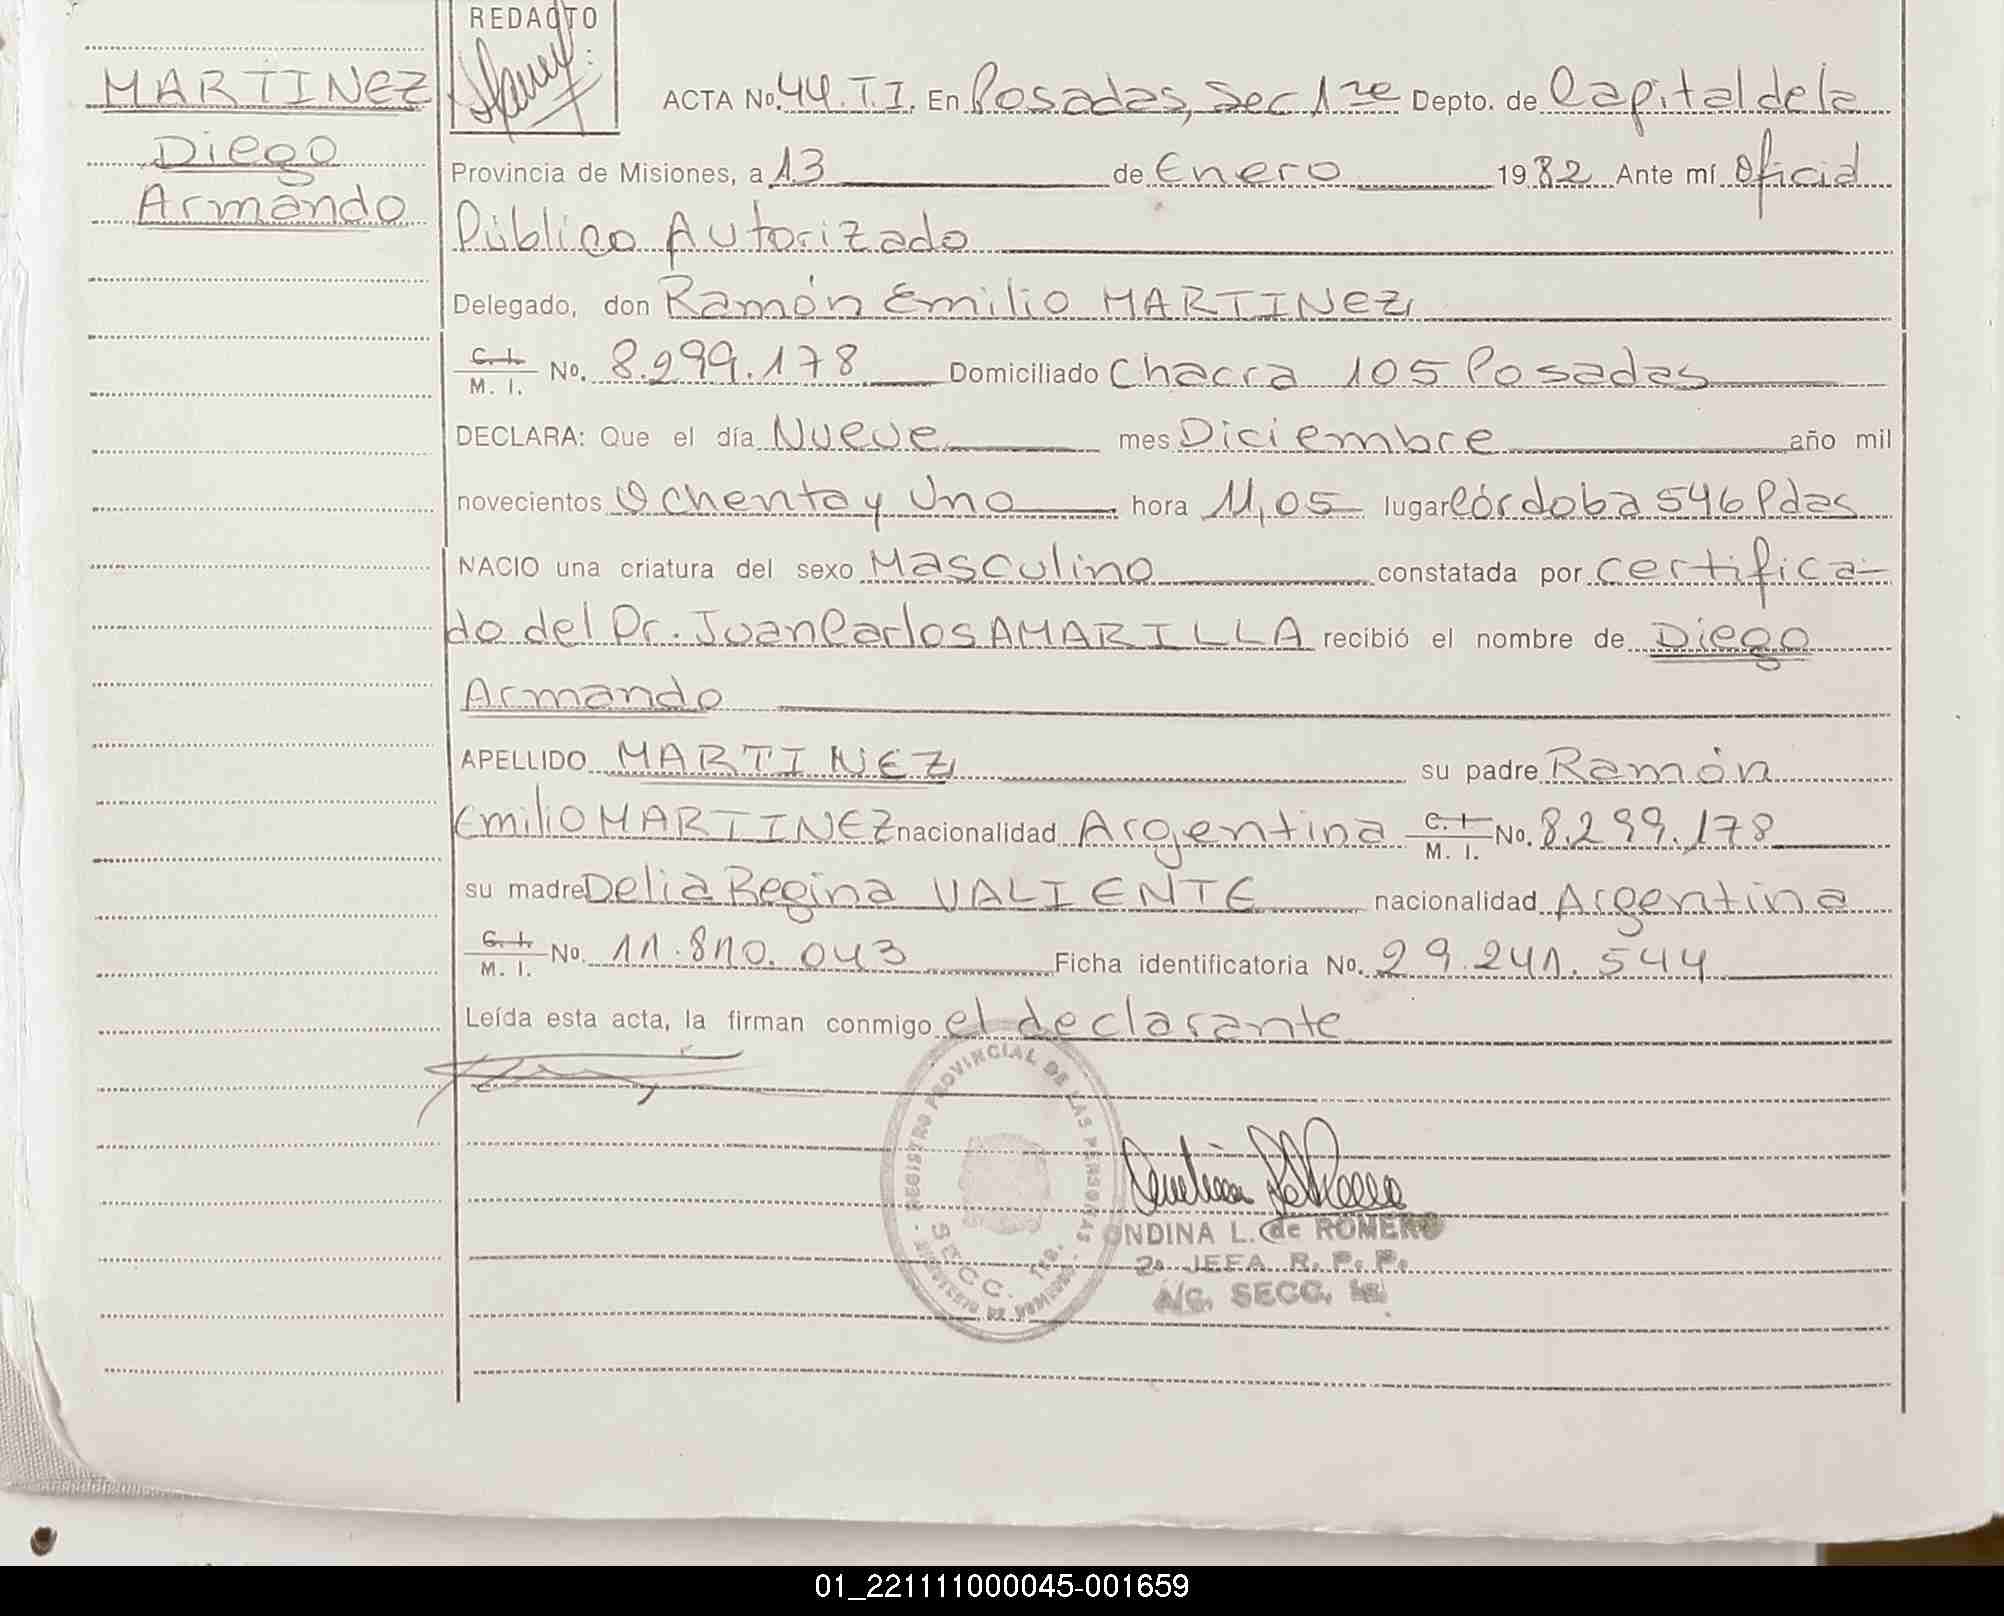 MARTINEZ
Diego
Armando
REDACTO
ACTA No. 44. T.I. En Posadas, Sec 1ra Depto. de Capital de la
Provincia de Misiones, a 13 de Enero 1982 Ante mí Oficial
Público Autorizado
Delegado, don Ramón Emilio MARTINEZ
C. I. / M. I. No. 8.299.178 Domiciliado Chacra 105 Posadas
DECLARA: Que el día Nueve mes Diciembre año mil
novecientos Ochenta y Uno hora 11,05 lugar Córdoba 546 Pdas
NACIO una criatura del sexo Masculino constatada por certifica-
do del Dr. Juan Carlos AMARILLA recibió el nombre de Diego
Armando
APELLIDO MARTINEZ su padre Ramón
Emilio MARTINEZ nacionalidad Argentina C. I. / M. I. No. 8.299.178
su madre Delia Regina VALIENTE nacionalidad Argentina
C. I. / M. I. No. 11.810.043 Ficha identificatoria No. 29.241.544
Leída esta acta, la firman conmigo el declarante
REGISTRO PROVINCIAL DE LAS PERSONAS
SECC. 1ra.
ONDINA L. de ROMERO
2a JEFA R. P. P.
A/C. SECC. 1a
01_221111000045-001659